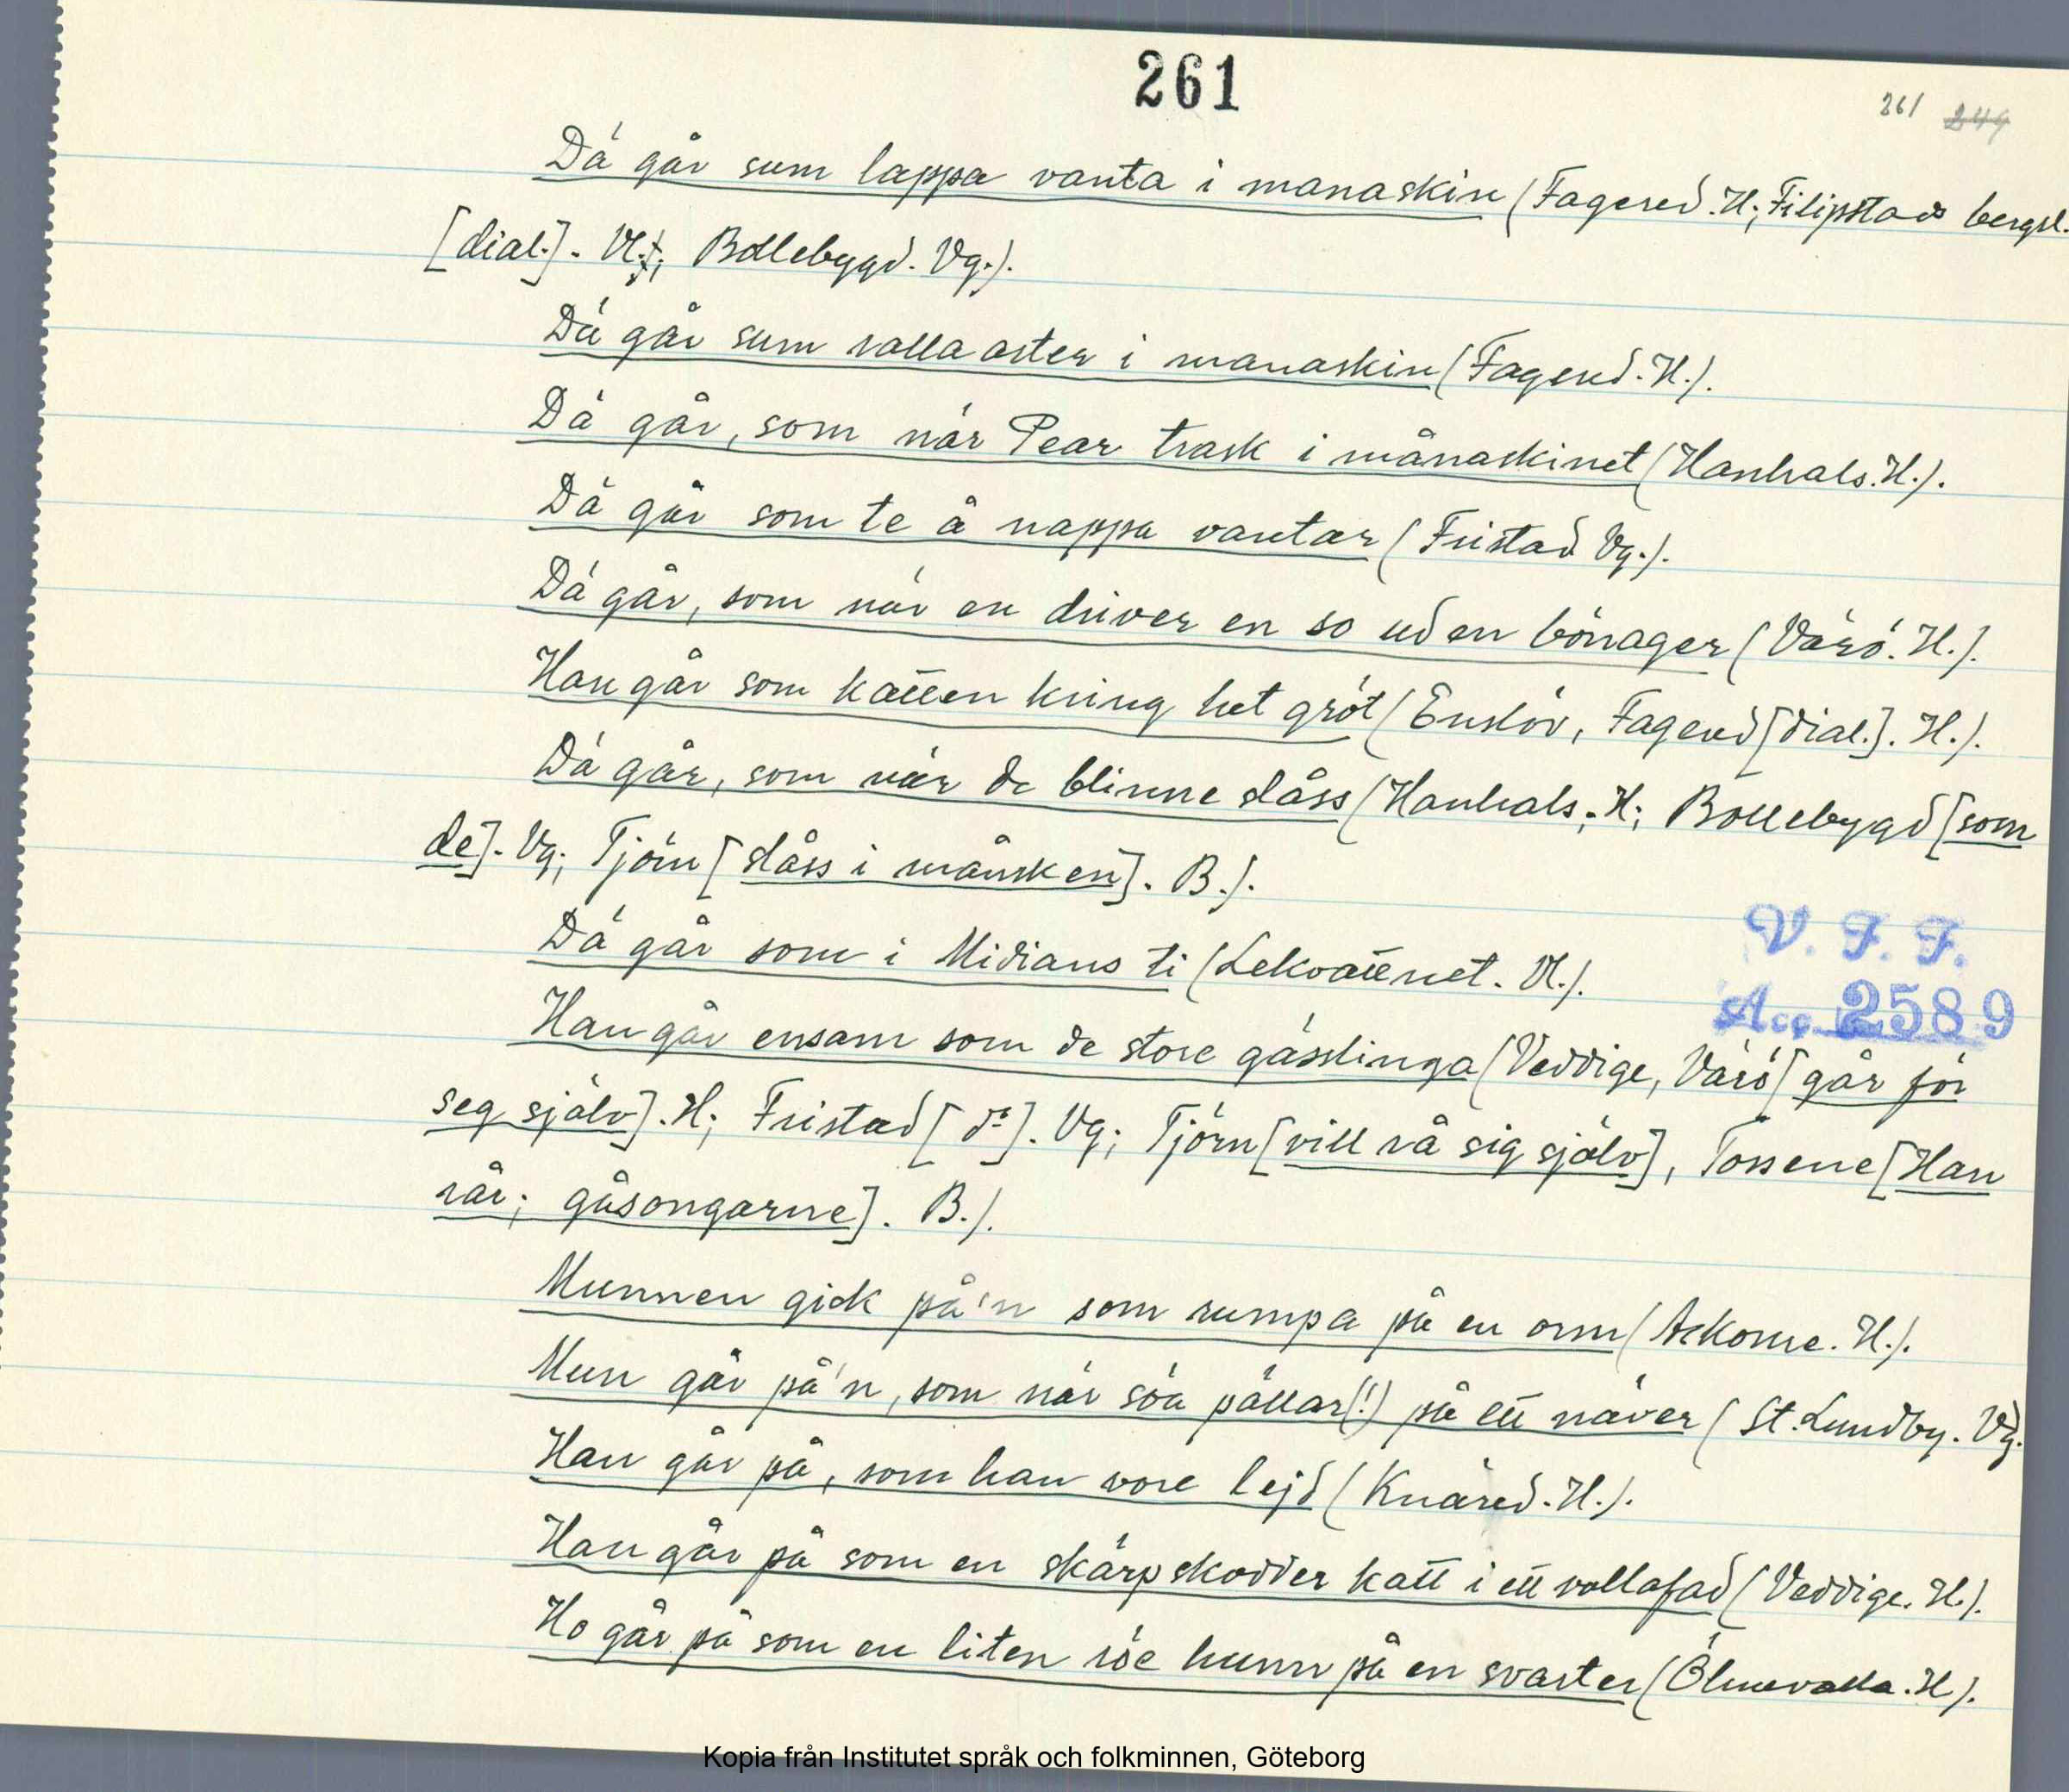 261
261 249
Dä går sum lappa vanta i manaskin (Fagered. H; Filipstads bergsl.
[dial.]. Vl.; Bollebygd. Vg.).
Dä går sum valla aster i manaskin (Fagered. H.).
Dä går, som när Pear trask i månaskinet (Hanhals. H.).
Dä går som te å nappa vantar (Fristad Vg.).
Dä går, som när en driver en so ud en bönager (Värö. H.).
Han går som katten kring het gröt (Enslöv, Fagered [dial.]. H.).
Dä går, som när de blinne slåss (Hanhals. H; Bollebygd [som
de]. Vg; Tjörn [slåss i månsken]. B.).
Dä går som i Midians ti (Lekvattnet. Vl.).
V. F. F.
Acc. 2589
Han går ensam som de store gässlinga (Veddige, Värö [går för
seg själv]. H; Fristad [do]. Vg; Tjörn [vill rå sig själv], Tossene [Han
rår; gåsongarne]. B.).
Munnen gick på'n som rumpa på en orm (Askome. H.).
Mun går på'n, som när söa pällar(!) på ett näver (St. Lundby. Vg.
Han går på, som han vore lejd (Knäred. H.).
Han går på som en skärpskodder katt i ett vallafad (Veddige. H.).
Ho går på som en liten röe hunn på en svarter (Ölmevalla. H).
Kopia från Institutet språk och folkminnen, Göteborg